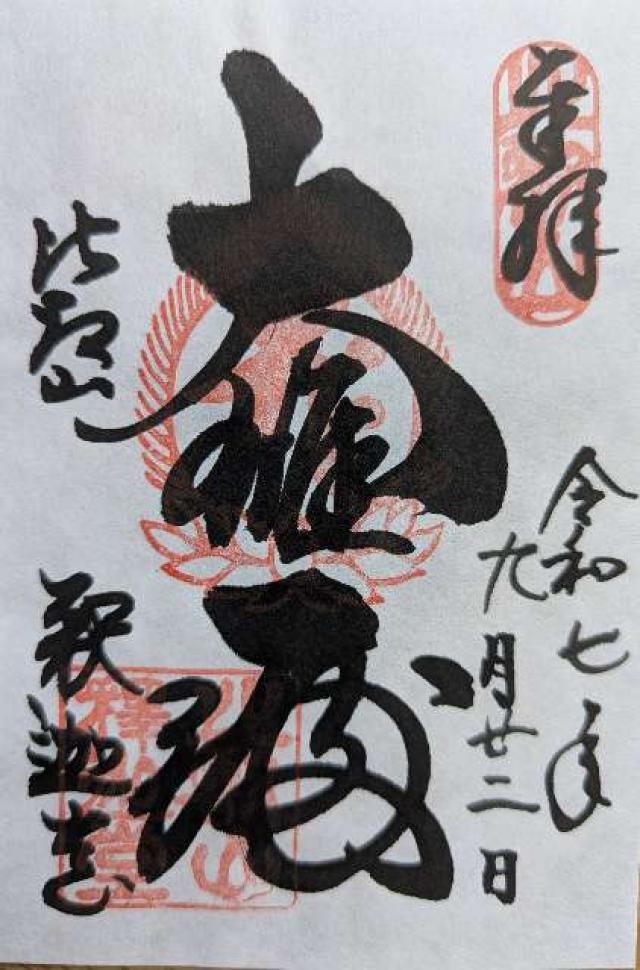 奉拝
令和七年
九月廿二日
大雄殿
比叡山
釈迦堂